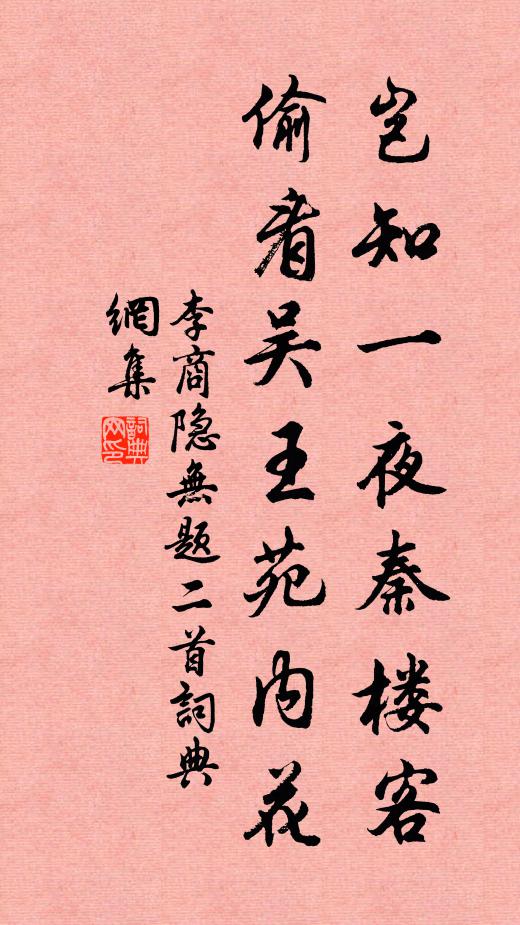 岂知一夜秦楼客
偷看吴王苑内花
李商隐無题二首詞典
網集
詞典網印